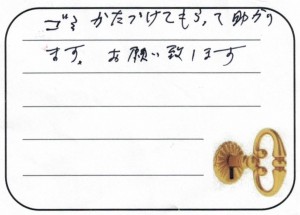 ゴミかたづけてもらって助かり
ます。お願い致します